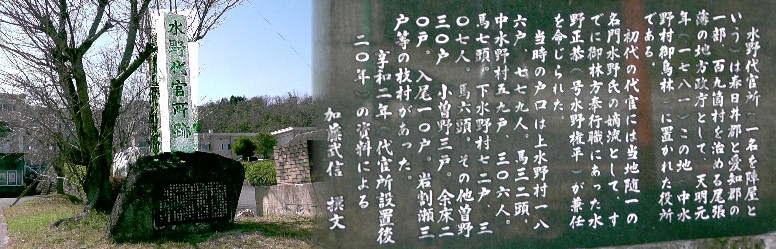 水野代官所跡
水野代官所(一名を陣屋と
いう)は春日井郡と愛知郡の
一部、百九箇村を治める尾張
藩の地方政府として、天明元
年(一七八一)この地(中水
野村御鳥林)に置かれた役所
である。
初代の代官には当地随一の
名門水野氏の嫡流として、す
でに御林方奉行職にあった水
野正恭(号水野権平)が兼任
を命じられた。
当時の戸口は上水野村一八
六戸、七七九人、馬三二頭、
中水野村五九戸 三〇六人。
馬七頭。下水野村七二戸 三
〇七人。馬六頭。その他曽野
三〇戸 小曽野三戸。余床二
〇戸。入尾一〇戸。岩割瀬三
戸等の枝村があった。
享和二年(代官所設置後
二〇年)の資料による
加藤武信 撰文